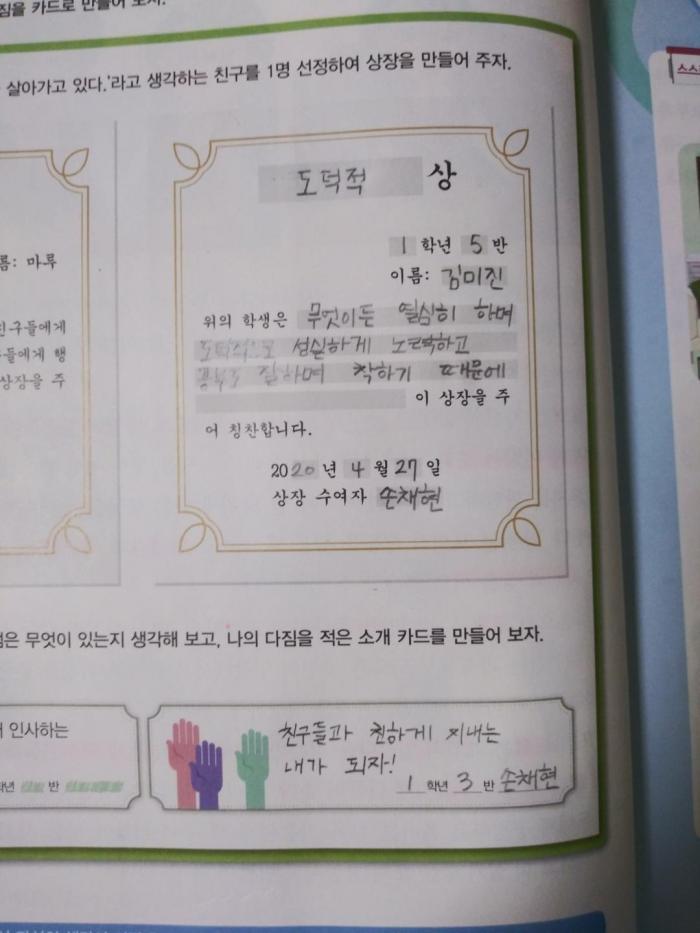 짐을 카드로 만들어 보자.
살아가고 있다.'라고 생각하는 친구를 1명 선정하여 상장을 만들어 주자.
도덕적 상
1 학년 5 반
이름: 김미진
위의 학생은 무엇이든 열심히 하며
도덕적으로 성실하게 노력하고
공부도 잘하며 착하기 때문에
이 상장을 주
어 칭찬합니다.
2020 년 4 월 27 일
상장 수여자 손채현
름: 마루
친구들에게
들에게 행
상장을 주
점은 무엇이 있는지 생각해 보고, 나의 다짐을 적은 소개 카드를 만들어 보자.
인사하는
학년 반
친구들과 친하게 지내는
내가 되자!
1 학년 3 반 손채현
스스